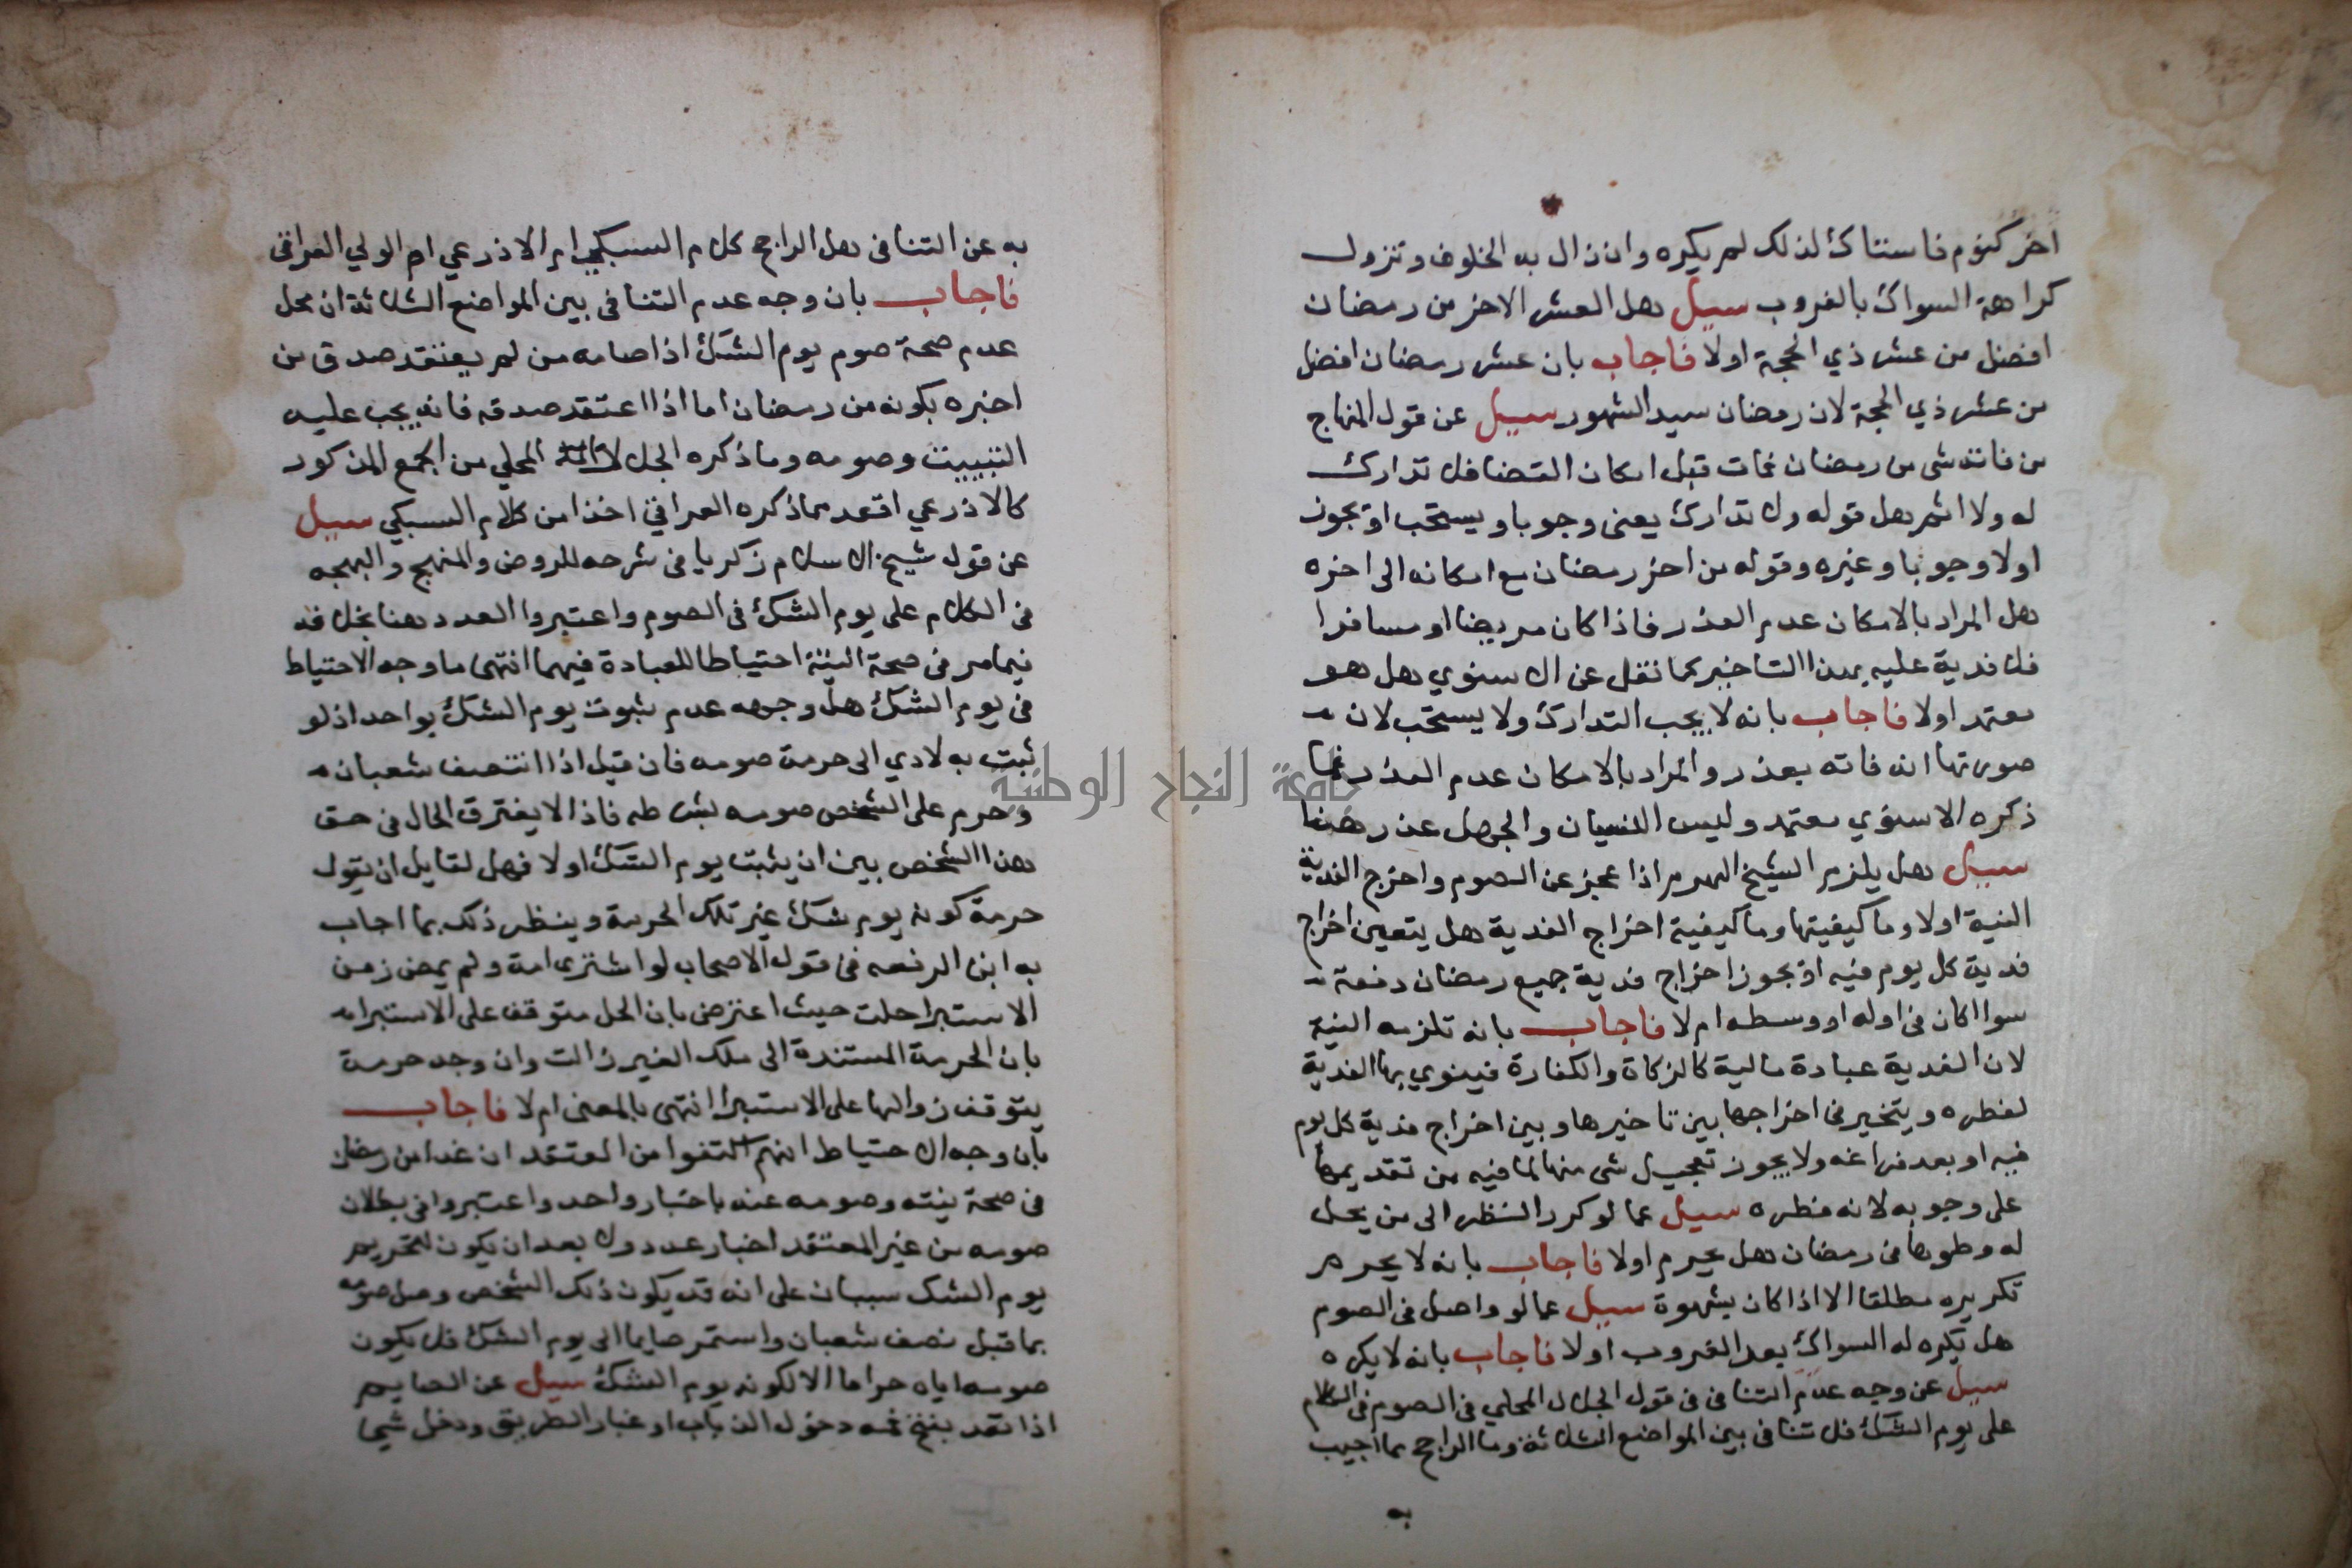 اخر كنوم فاستاك لذلك لم يكره وان زال به الخلوف وتزول
كراهة السواك بالغروب سيل هل العشر الاخر من رمضان
افضل من عشر ذي الحجة اولا فاجاب بان عشر رمضان افضل
من عشر ذي الحجة لان رمضان سيد الشهور سيل عن قول المنهاج
من فاته شي من رمضان فمات قبل امكان القضا فلا تدارك
له ولا اثم هل قوله ولا تدارك يعنى وجوبا ويستحب او يجوز
اولا وجوبا وغيره وقوله من اخر رمضان مع امكانه الى اخره
هل المراد بالامكان عدم العذر فاذا كان مريضا او مسافرا
فلا فدية عليه بهذا التاخير كما نقل عن الاسنوي هل هو
معتمد اولا فاجاب بانه لا يجب التدارك ولا يستحب لان
صورتها انه فاته بعذر والمراد بالامكان عدم العذر فما
ذكره الاسنوي معتمد وليس النسيان والجهل عذر هنا
سيل هل يلزم الشيخ الهرم اذا عجز عن الصوم واخرج الفدية
النية اولا وما كيفيتها وما كيفية اخراج الفدية هل يتعين اخراج
فدية كل يوم فيه او يجوز اخراج فدية جميع رمضان دفعة
سوا كان في اوله او وسطه ام لا فاجاب بانه تلزمه النية
لان الفدية عبادة مالية كالزكاة والكفارة فينوي بها الفدية
لفطره ويتخير في اخراجها بين تاخيرها وبين اخراج فدية كل يوم
فيه او بعد فراغه ولا يجوز تعجيل شي منها لما فيه من تقديمها
على وجوبه لانه فطره سيل عما لو كرر النظر الى من يحل
له وطوها في رمضان هل يحرم اولا فاجاب بانه لا يحرم
تكريره مطلقا الا اذا كان بشهوة سيل عما لو واصل في الصوم
هل يكره له السواك بعد الغروب اولا فاجاب بانه لا يكره
سيل عن وجه عدم التنافى في قول الجلال المحلي في الصوم في الكلام
على يوم الشك فلا تنافى بين المواضع الثلاثة وما الراجح مما اجيب
به
به عن التنافى هل الراجح كلام السبكي ام الاذرعي ام الولي العراقى
فاجاب بان وجه عدم التنافى بين المواضع الثلاثة ان محل
عدم صحة صوم يوم الشك اذا صامه من لم يعتقد صدق من
اخبره بكونه من رمضان اما اذا اعتقد صدقه فانه يجب عليه
التبييت وصومه وما ذكره الجلال المحلي من الجمع المذكور
كالاذرعي اقعد مما ذكره العراقي اخذا من كلام السبكي سيل
عن قول شيخ الاسلام زكريا في شرحه للروض والمنهج والبهجه
في الكلام على يوم الشك في الصوم واعتبروا العدد هنا بخلافه
فيما مر في صحة النية احتياطا للعبادة فيهما انتهى ما وجه الاحتياط
في يوم الشك هل وجهه عدم ثبوت يوم الشك بواحد اذ لو
ثبت به لادي الى حرمة صومه فان قيل اذا انتصف شعبان
وحرم على الشخص صومه بشرطه فاذا لا يفترق الحال في حق
هذا الشخص بين ان يثبت يوم الشك اولا فهل لقايل ان يقول
حرمة كونه يوم شك غير تلك الحرمة وينظر ذلك بما اجاب
به ابن الرفعه في قول الاصحاب لو اشترى امة ولم يمض زمن
الاستبرا حلت حيث اعترض بان الحل متوقف على الاستبرا
بان الحرمة المستندة الى ملك الغير زالت وان وجد حرمة
يتوقف زوالها على الاستبرا انتهى بالمعنى ام لا فاجاب
بان وجه الاحتياط انهم اكتفوا من المعتقد ان غدا من رمضان
في صحة نيته وصومه عنه باخبار واحد واعتبروا في بطلان
صومه من غير المعتقد اخبار عدد ولا بعد ان يكون لتحريم
يوم الشك سببان على انه قد يكون ذلك الشخص وصل صومه
بما قبل نصف شعبان واستمر صايما الى يوم الشك فلا يكون
صومه اياه حراما الا لكونه يوم الشك سيل عن الصايم
اذا تعمد بفتح فمه دخول الذباب او غبار الطريق ودخل شيا
جامعة النجاح الوطنية